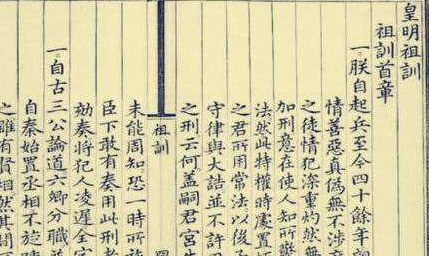 皇明祖訓
祖訓首章
一朕自起兵至今四十餘年親
情善惡真偽無不涉
之徒情犯深重灼然無
加刑意在使人知所警
法然此特權時處置
之君所用常法以後
守律與大誥並不許
之刑云何蓋嗣君宮
祖訓
未能周知恐一時所
臣下敢有奏用此刑者
劾奏將犯人凌遲全
一自古三公論道六卿分職
自秦始置丞相不旋
之雖有賢相然其間